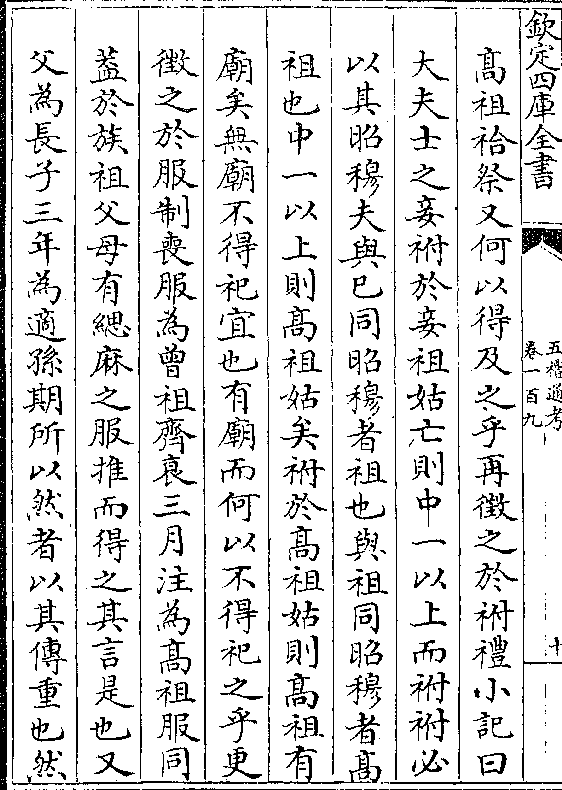 欽定四庫全書
五禮通考
卷一百九
十
高祖祫祭又何以得及之乎再徵之於祔禮小記曰
大夫士之妾祔於妾祖姑亡則中一以上而祔祔必
以其昭穆夫與已同昭穆者祖也與祖同昭穆者高
祖也中一以上則高祖姑矣祔於高祖姑則高祖有
廟矣無廟不得祀宜也有廟而何以不得祀之乎更
徵之於服制喪服為曾祖齊衰三月注為高祖服同
葢於族祖父母有緦麻之服推而得之其言是也又
父為長子三年為適孫期所以然者以其傳重也然